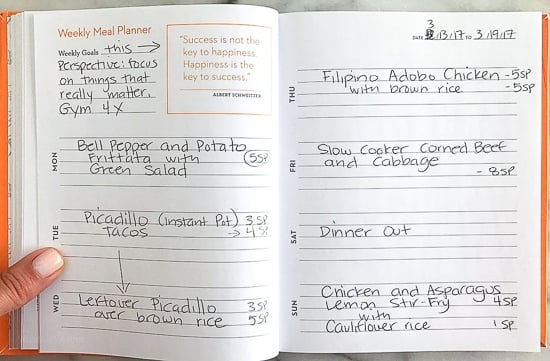 Weekly Meal Planner
Weekly Goals this →
Perspective: focus
on things that
really matter.
Gym 4X
"Success is not the
key to happiness.
Happiness is the
key to success."
ALBERT SCHWEITZER
MON
Bell Pepper and Potato
Frittata with 5SP
Green Salad
TUE
Picadillo (Instant Pot) 3SP
tacos → 4SP
WED
Leftover Picadillo 3SP
over brown rice 5SP
3
DATE /13/17 TO 3/19/17
THU
Filipino Adobo Chicken -5SP
with brown rice -5SP
FRI
Slow Cooker Corned Beef
and Cabbage
- 8SP
SAT
Dinner Out
SUN
Chicken and Asparagus
Lemon Stir-Fry 4SP
with
Cauliflower rice 1SP